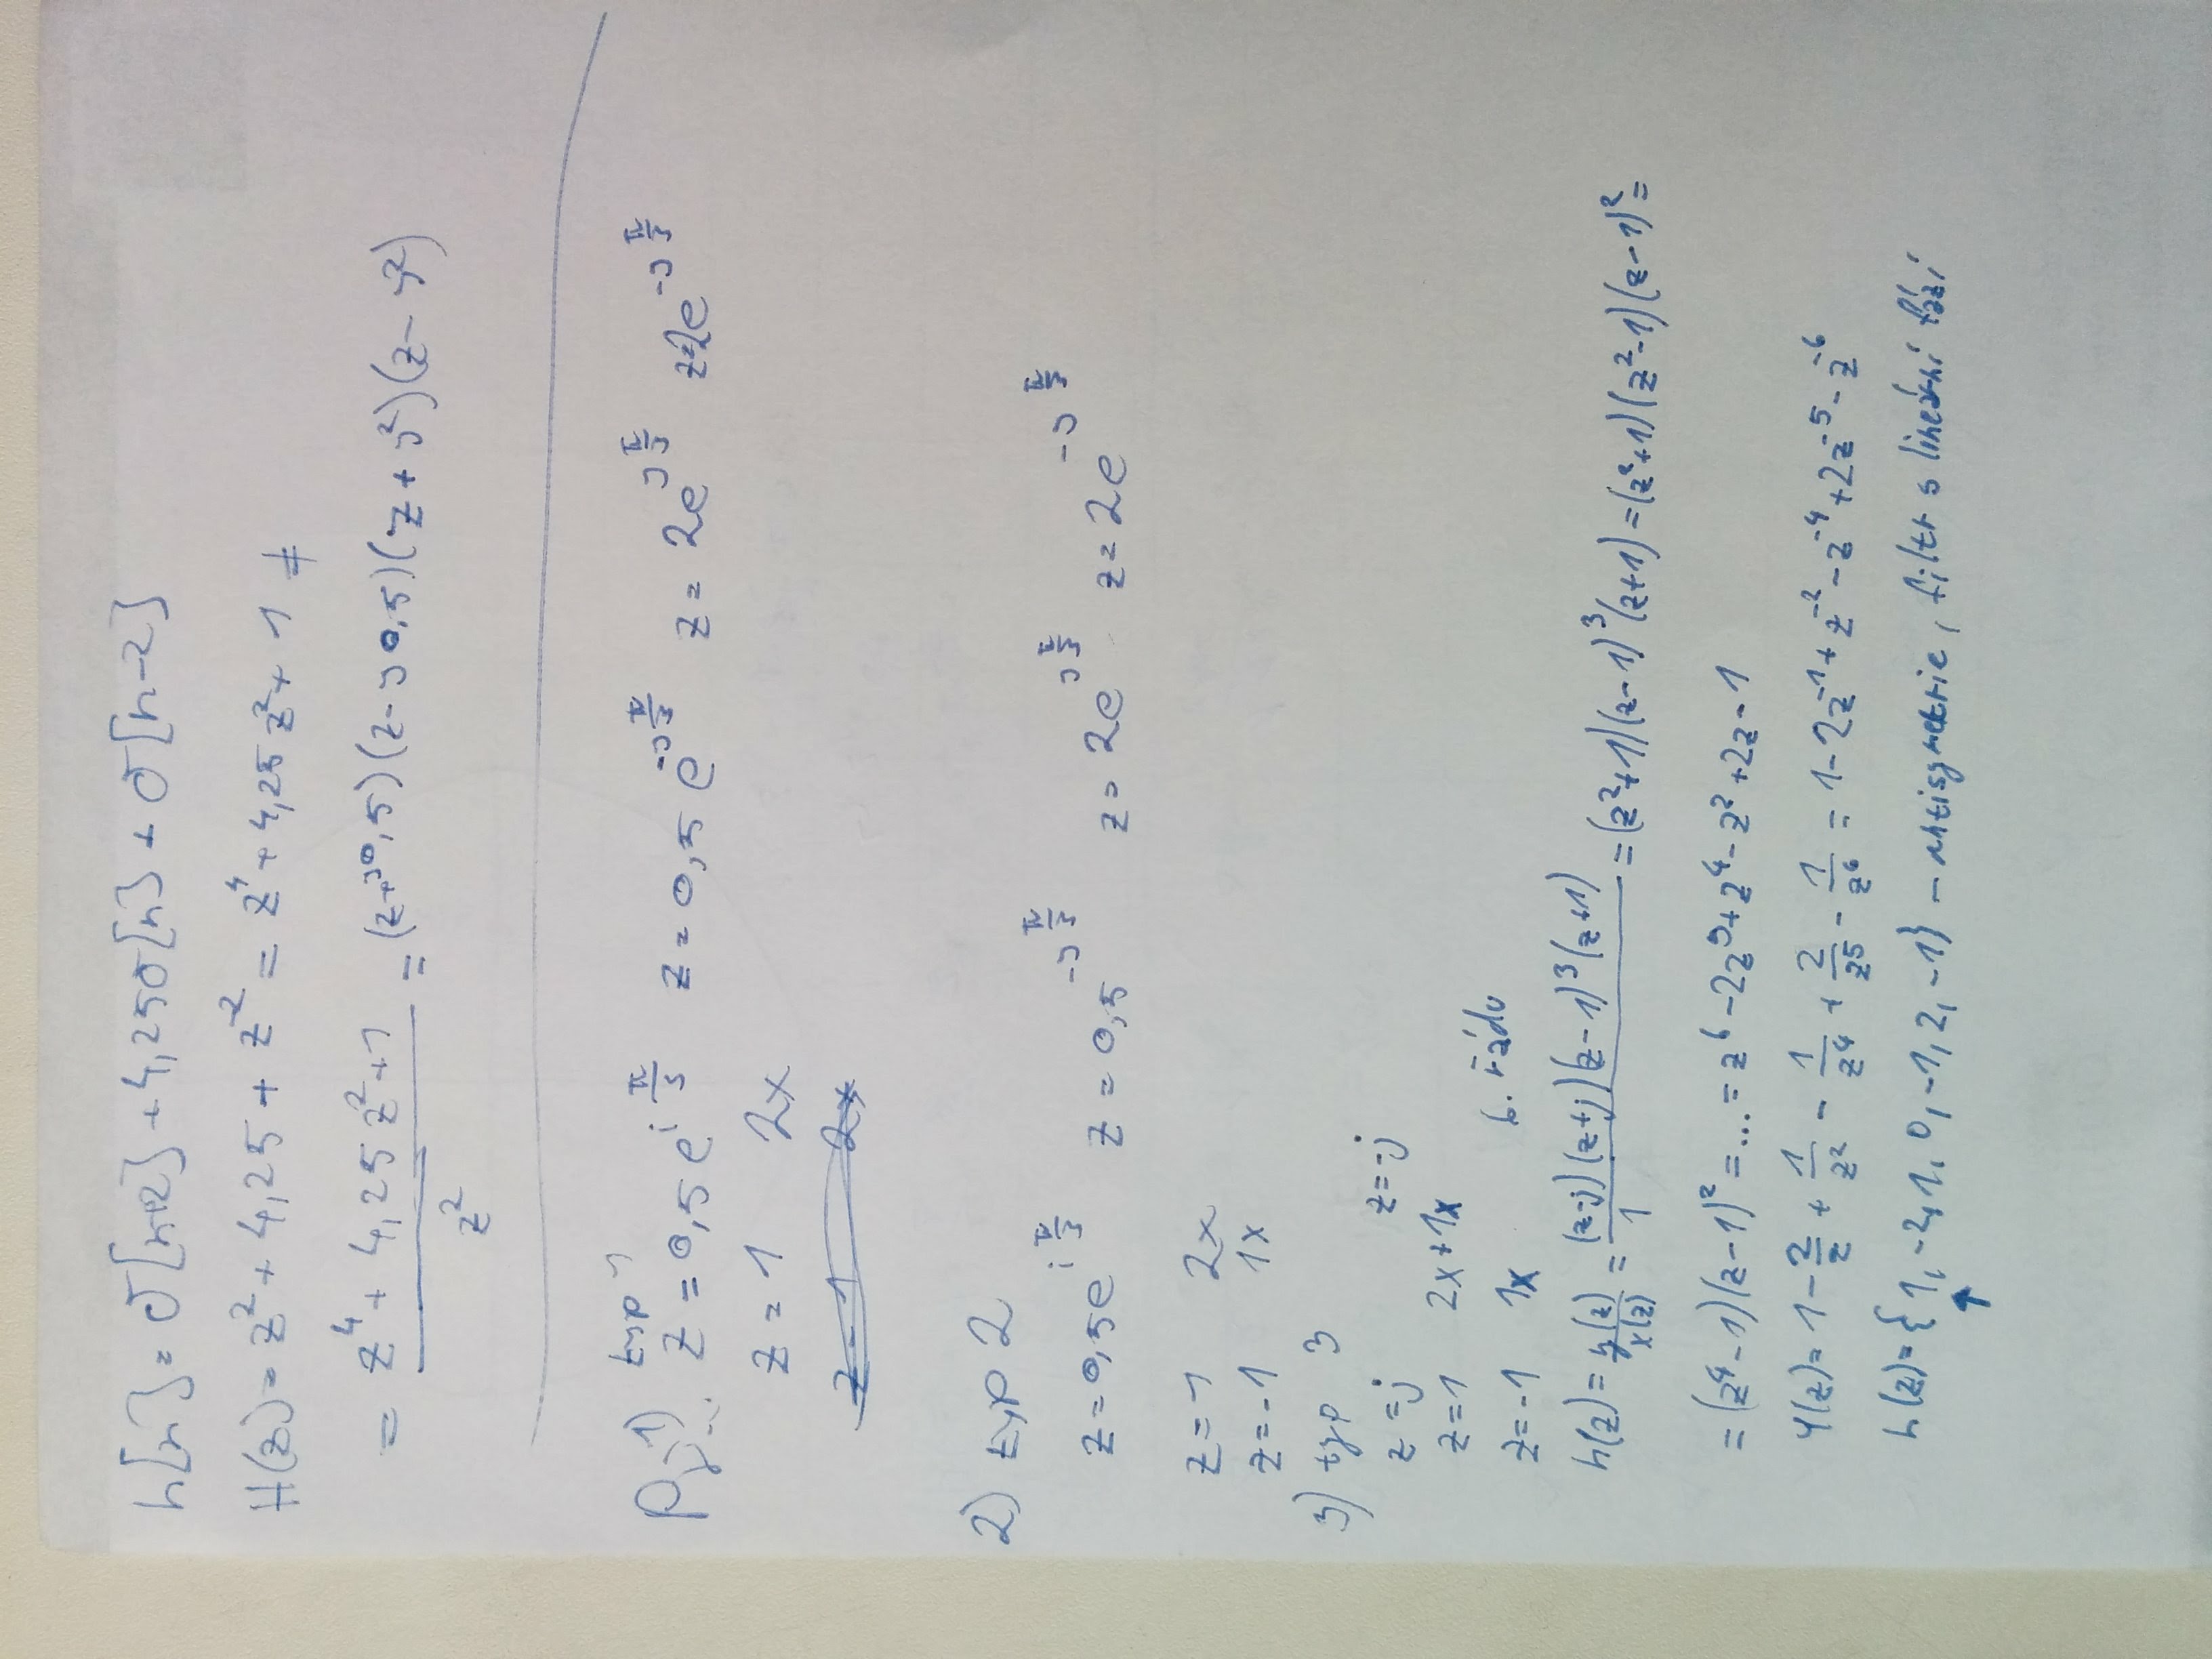 h[n] = δ[n+2] + 4,25δ[n] + δ[n-2]
H(z) = z² + 4,25 + z⁻² = z⁴ + 4,25z² + 1 ≠
= (z⁴ + 4,25z² + 1)/z² = (z+j0,5)(z-j0,5)(z+j²)(z-j²)
Př. 1) typ 1
z = 0,5e^{i π/3} z = 0,5e^{-j π/3} z = 2e^{j π/3} z=2e^{-j π/3}
z = 1 2x
2) typ 2
z = 0,5e^{i π/3} z = 0,5^{-j π/3} z = 2e^{j π/3} z = 2e^{-j π/3}
z = 1 2x
z = -1 1x
3) typ 3
z = j z = -j
z = 1 2x+1x
z = -1 1x 6. řádu
h(z) = y(z)/x(z) = (z-j)(z+j)(z-1)³(z+1)/1 = (z²+1)(z-1)³(z+1) = (z²+1)(z²-1)(z-1)² =
= (z⁴-1)(z-1)² = ... = z⁶ - 2z⁵ + z⁴ - z² + 2z - 1
Y(z) = 1 - 2/z + 1/z² - 1/z⁴ + 2/z⁵ - 1/z⁶ = 1 - 2z⁻¹ + z⁻² - z⁻⁴ + 2z⁻⁵ - z⁻⁶
h(z) = {1, -2, 1, 0, -1, 2, -1} - antisymetrie, filtr s lineární fází
↑